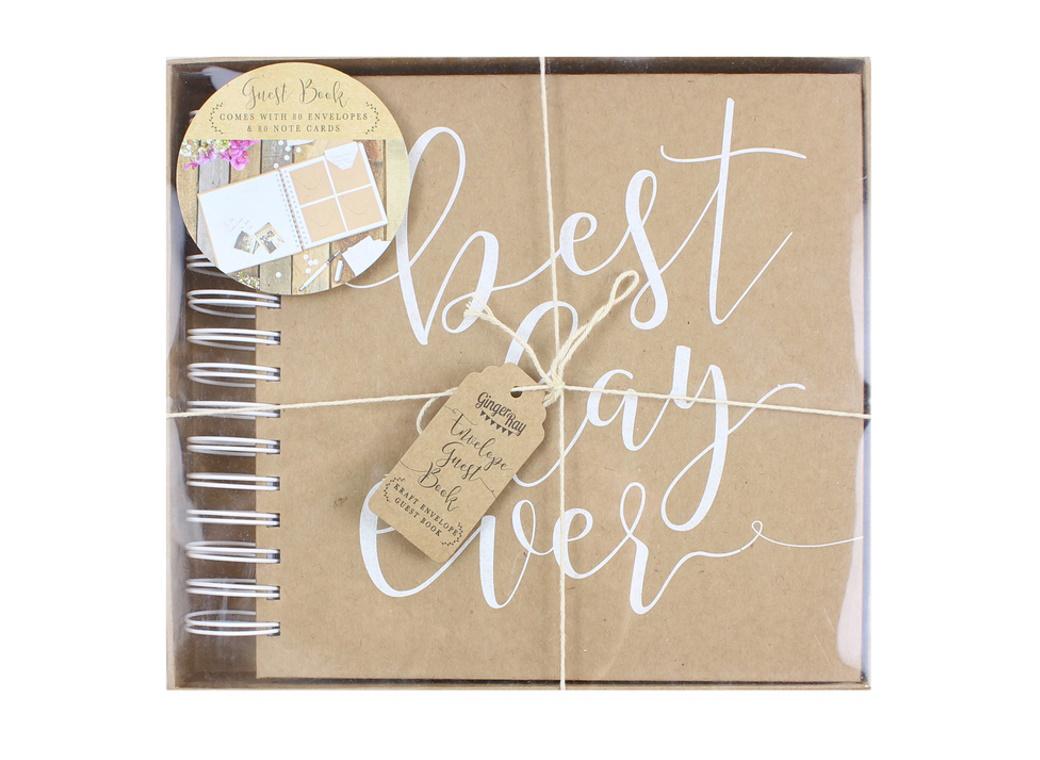 Guest Book
COMES WITH 80 ENVELOPES
& 80 NOTE CARDS
best
day
ever
GingerRay
Envelope
Guest
Book
KRAFT ENVELOPE
GUEST BOOK